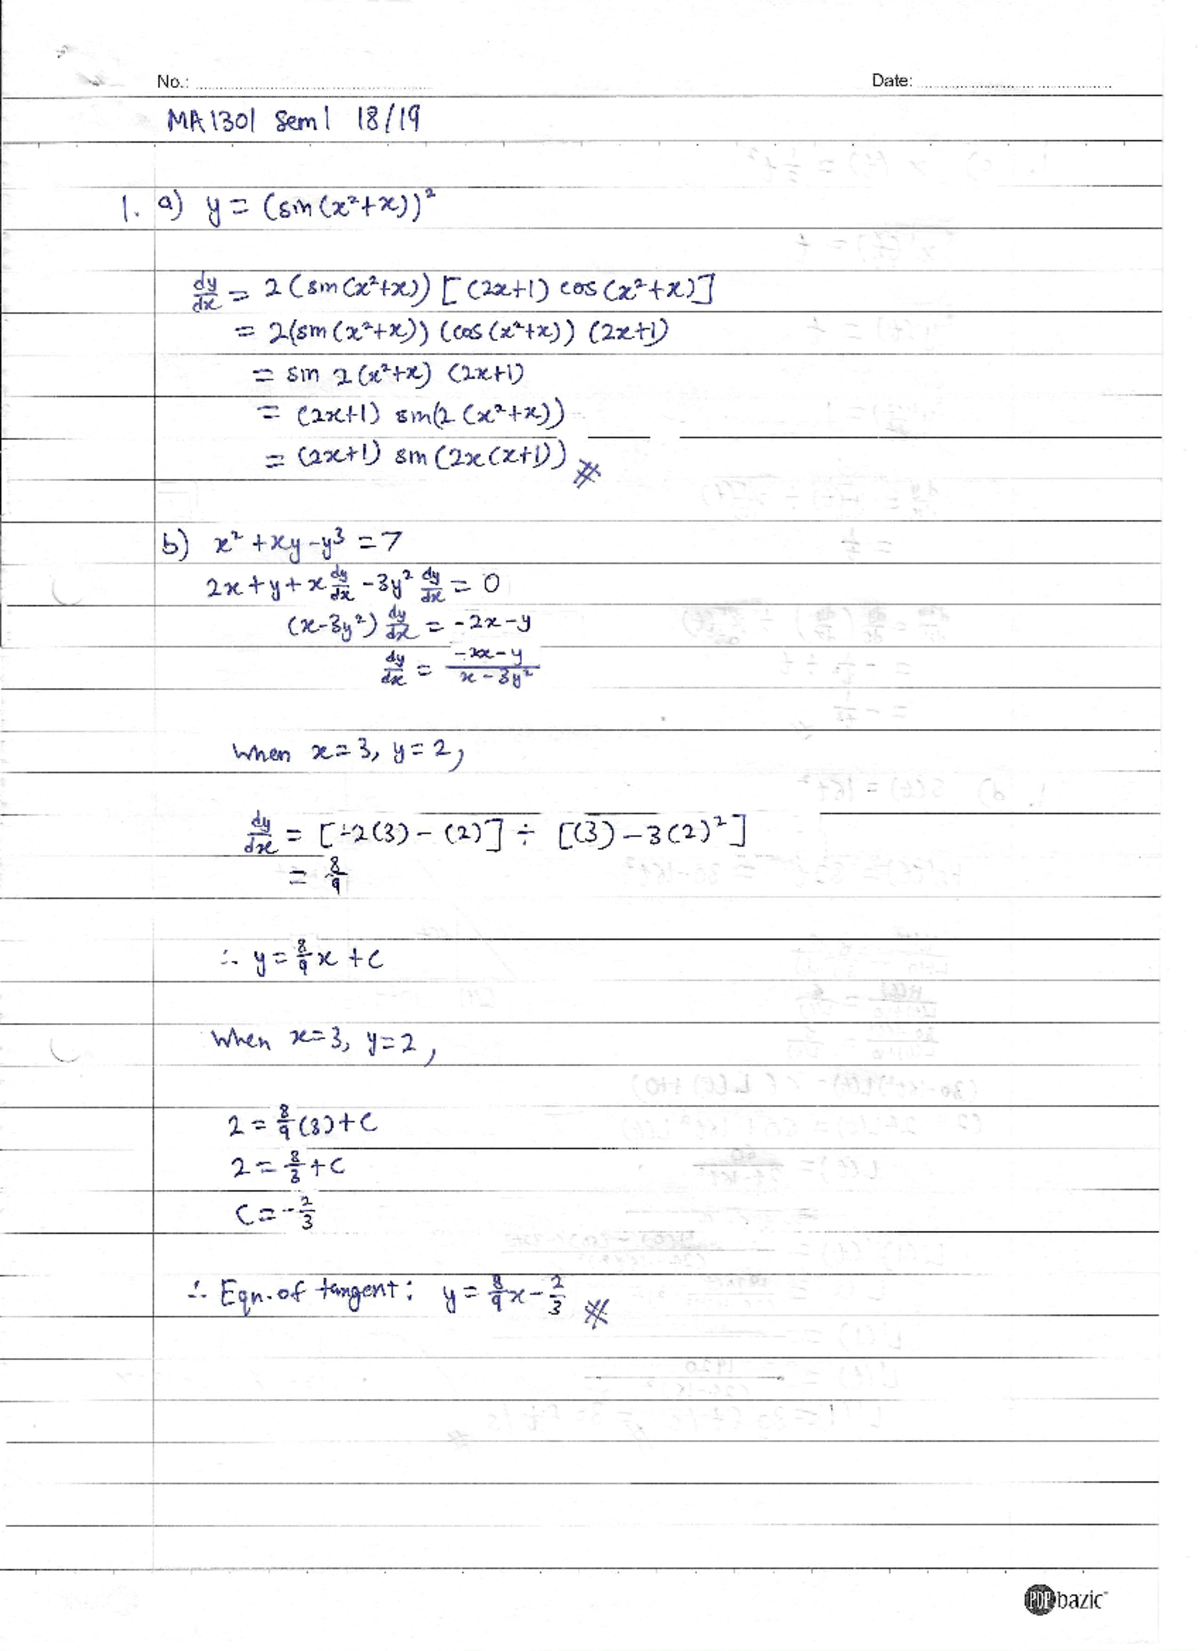 No.: Date:
MA1301 Sem 1 18/19
1. a) y = (sin(x²+x))²
dy/dx = 2(sin(x²+x)) [(2x+1) cos(x²+x)]
= 2(sin(x²+x)) (cos(x²+x)) (2x+1)
= sin 2(x²+x) (2x+1)
= (2x+1) sin(2(x²+x))
= (2x+1) sin(2x(x+1))
b) x² + xy - y³ = 7
2x + y + x dy/dx - 3y² dy/dx = 0
(x-3y²) dy/dx = -2x-y
dy/dx = (-2x-y)/(x-3y²)
When x=3, y=2,
dy/dx = [-2(3) - (2)] ÷ [(3) - 3(2)²]
= 8/9
∴ y = 8/9 x + c
When x=3, y=2,
2 = 8/9 (3) + c
2 = 8/3 + c
c = -2/3
∴ Eqn. of tangent: y = 8/9 x - 2/3
POP bazic